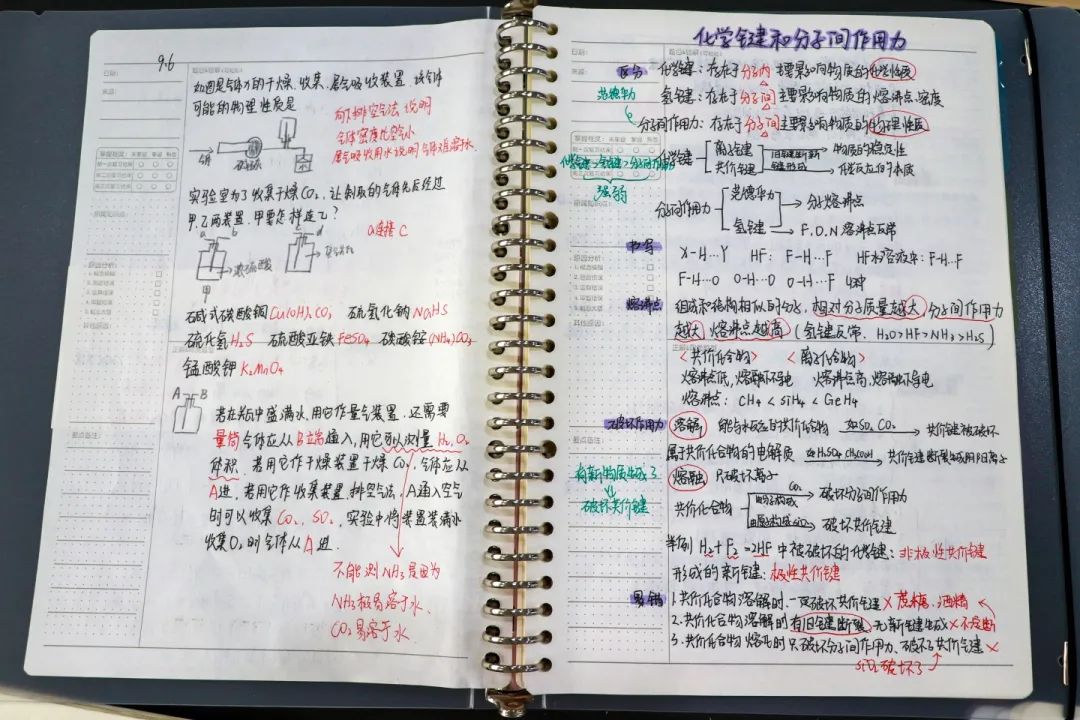 9.6
如图是气体X的干燥、收集、尾气吸收装置,该气体
可能的物理性质是
向下排空气法说明
气体密度比空气小
尾气吸收用水说明气体难溶水.
气体
碱石灰
实验室为了收集干燥CO₂,让制取的气体先后经过
甲、乙两装置,甲要怎样连乙?
a连接C
a b c d
浓硫酸
甲
碱式碳酸铜Cu₂(OH)₂CO₃ 硫氢化钠NaHS
硫化氢H₂S 硫酸亚铁FeSO₄ 碳酸铵(NH₄)₂CO₃
锰酸钾K₂MnO₄
A B
若在瓶中盛满水,用它作量气装置,还需要
量筒气体应从B端通入,用它可以测量H₂、O₂
体积,若用它作干燥装置干燥CO₂,气体应从
A进,若用它作收集装置,排空气法,A通入空气
时可以收集CO₂、SO₂,实验中将装置装满水
收集O₂时气体从A进.
不能测NH₃是因为
NH₃极易溶于水、
CO₂易溶于水
化学键和分子间作用力
区分 化学键:存在于分子内主要影响物质的化学性质
范德华力 氢键:存在于分子间主要影响物质的熔沸点、密度
分子间作用力:存在于分子间主要影响物质的物理性质
化学键>氢键>分子间作用力
强弱
化学键 离子键 共价键 旧键断新键形成 物质的稳定性
化学反应的本质
分子间作用力 范德华力 分子熔沸点
氢键 F、O、N熔沸点反常
书写 X-H…Y HF: F-H…F HF水溶液中: F-H…F
F-H…O O-H…O O-H…F 4种
熔沸点 组成和结构相似的分子,相对分子质量越大,分子间作用力
越大,熔沸点越高(氢键反常,H₂O>HF>NH₃>H₂S)
<共价化合物> <离子化合物>
熔沸点低,熔融不导电 熔沸点高,熔融导电
熔沸点: CH₄<SiH₄<GeH₄
破坏作用力 溶解 能与水反应的共价化合物 如SO₂ CO₂ 共价键被破坏
属于共价化合物的电解质 如H₂SO₄ CH₃COOH 共价键断裂生成阴阳离子
有新物质生成了
破坏共价键
熔融 只破坏离子
共价化合物 由分子构成 CO₂ 破坏分子间作用力
由原子构成SiO₂ 破坏共价键
举例 H₂+F₂=2HF中被破坏的化学键:非极性共价键
形成的新键:极性共价键
易错 1.共价化合物溶解时,一定破坏共价键×蔗糖、酒精
2.共价化合物溶解时有旧键断裂,无新键生成×
3.共价化合物熔化时只破坏分子间作用力、破坏了共价键×
SiO₂破坏了